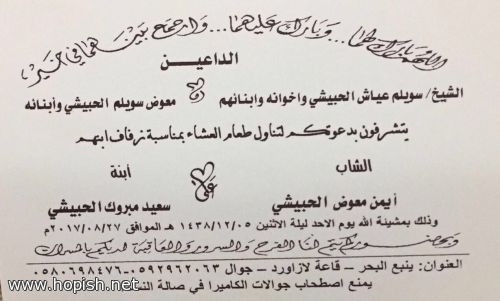 اللهم بارك لهما... وبارك عليهما... واجمع بينهما في خير
الداعين
الشيخ/ سويلم عياش الحبيشي واخوانه وابنائهم و معوض سويلم الحبيشي وأبنائه
يتشرفون بدعوتكم لتناول طعام العشاء بمناسبة زفاف ابنهم
الشاب على أبنة
أيمن معوض الحبيشي سعيد مبروك الحبيشي
وذلك بمشيئة الله يوم الاحد ليلة الاثنين ١٤٣٨/١٢/٠٥ هـ الموافق ٢٠١٧/٠٨/٢٧م
وبحضوركم يتم لنا الفرح والسرور والعاقبة لديكم بالمسرات
العنوان: ينبع البحر - قاعة لازاورد - جوال ٠٥٩٢٩٦٢٠٦٣-٠٥٨٠٦٩٨٤٧٦
يمنع اصطحاب جوالات الكاميرا في صالة
www.hopish.net